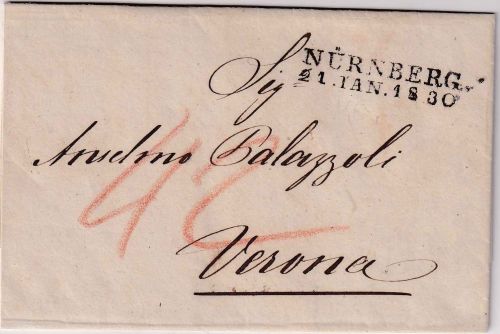 NÜRNBERG.
21.IAN.1830
Sig
Anselmo Palazzoli
42
Verona